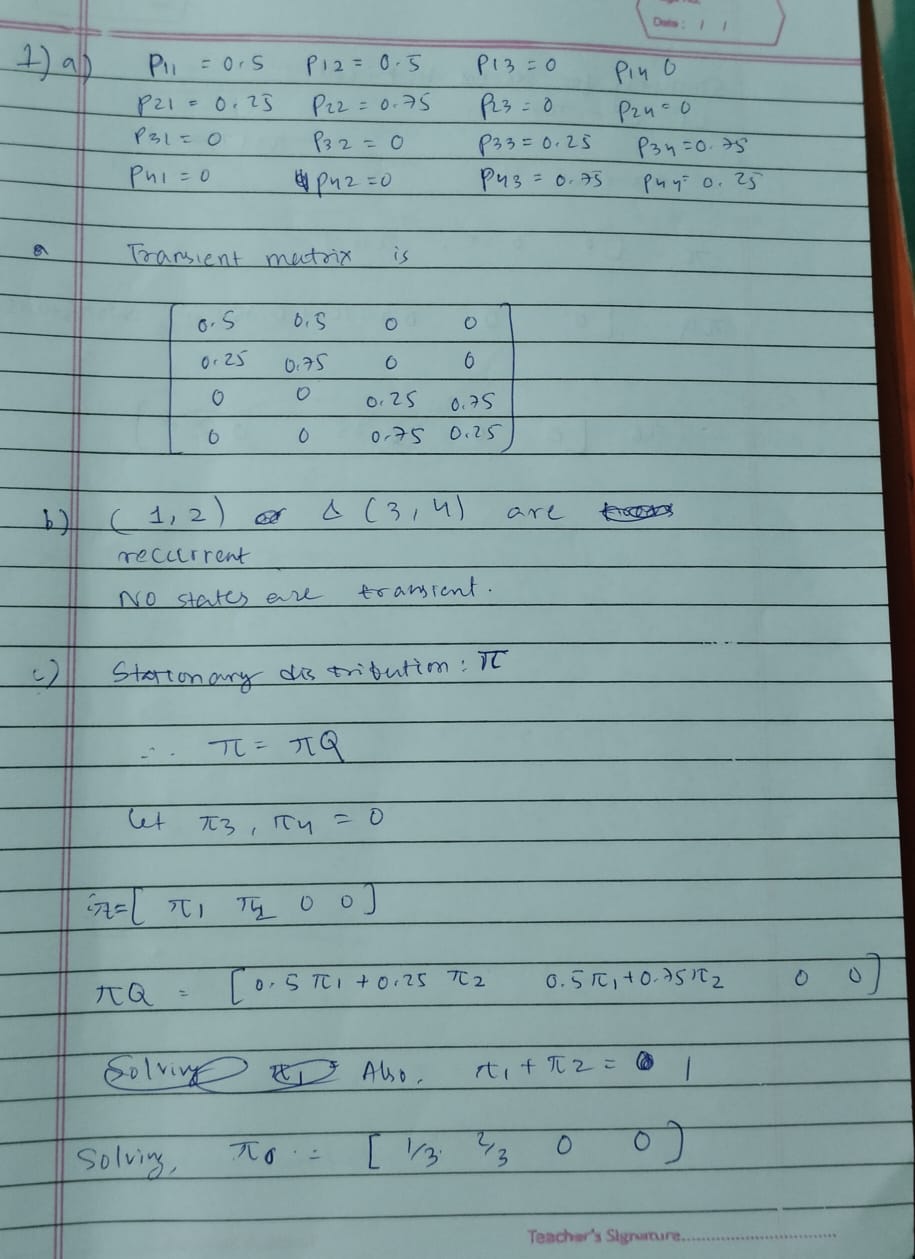 Date : / /
1) a) P11 = 0.5 P12 = 0.5 P13 = 0 P14 0
P21 = 0.25 P22 = 0.75 P23 = 0 P24 = 0
P31 = 0 P32 = 0 P33 = 0.25 P34 = 0.75
P41 = 0 P42 = 0 P43 = 0.75 P44 = 0.25
a Transient matrix is
0.5 0.5 0 0
0.25 0.75 0 0
0 0 0.25 0.75
0 0 0.75 0.25
b) (1,2) & (3,4) are
recurrent
No states are transient.
c) Stationary distribution : π
∴ π = πQ
let π3, π4 = 0
π = [ π1 π2 0 0 ]
πQ = [ 0.5 π1 + 0.25 π2 0.5 π1 + 0.75 π2 0 0 ]
Also, π1 + π2 = 1
Solving, π = [ 1/3 2/3 0 0 ]
Teacher's Signature